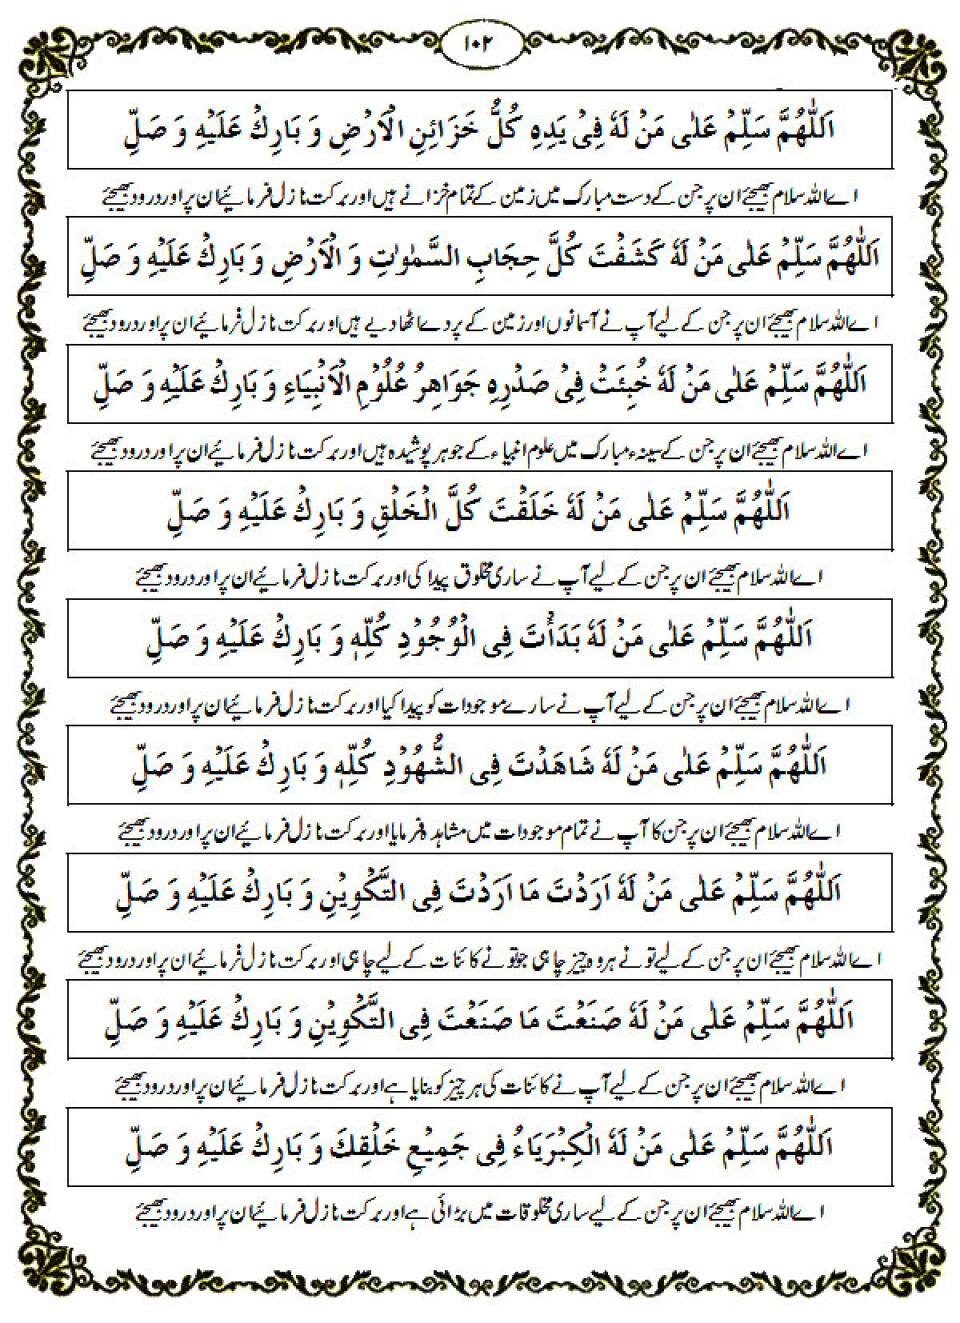 ۱۰۲
اَللّٰهُمَّ سَلِّمْ عَلٰى مَنْ لَهٗ فِىْ يَدِهٖ كُلُّ خَزَائِنِ الْاَرْضِ وَ بَارِكْ عَلَيْهِ وَ صَلِّ
اے اللہ سلام بھیجئے ان پر جن کے دست مبارک میں زمین کے تمام خزانے ہیں اور برکت نازل فرمائیے ان پر اور درود بھیجئے
اَللّٰهُمَّ سَلِّمْ عَلٰى مَنْ لَهٗ كَشَفْتَ كُلَّ حِجَابِ السَّمٰوٰتِ وَ الْاَرْضِ وَ بَارِكْ عَلَيْهِ وَ صَلِّ
اے اللہ سلام بھیجئے ان پر جن کے لیے آپ نے آسمانوں اور زمین کے پردے اٹھا دیے ہیں اور برکت نازل فرمائیے ان پر اور درود بھیجئے
اَللّٰهُمَّ سَلِّمْ عَلٰى مَنْ لَهٗ خُبِئَتْ فِىْ صَدْرِهٖ جَوَاهِرُ عُلُوْمِ الْاَنْبِيَاءِ وَ بَارِكْ عَلَيْهِ وَ صَلِّ
اے اللہ سلام بھیجئے ان پر جن کے سینہء مبارک میں علوم انبیاء کے جوہر پوشیدہ ہیں اور برکت نازل فرمائیے ان پر اور درود بھیجئے
اَللّٰهُمَّ سَلِّمْ عَلٰى مَنْ لَهٗ خَلَقْتَ كُلَّ الْخَلْقِ وَ بَارِكْ عَلَيْهِ وَ صَلِّ
اے اللہ سلام بھیجئے ان پر جن کے لیے آپ نے ساری مخلوق پیدا کی اور برکت نازل فرمائیے ان پر اور درود بھیجئے
اَللّٰهُمَّ سَلِّمْ عَلٰى مَنْ لَهٗ بَدَاْتَ فِى الْوُجُوْدِ كُلِّهٖ وَ بَارِكْ عَلَيْهِ وَ صَلِّ
اے اللہ سلام بھیجئے ان پر جن کے لیے آپ نے سارے موجودات کو پیدا کیا اور برکت نازل فرمائیے ان پر اور درود بھیجئے
اَللّٰهُمَّ سَلِّمْ عَلٰى مَنْ لَهٗ شَاهَدْتَ فِى الشُّهُوْدِ كُلِّهٖ وَ بَارِكْ عَلَيْهِ وَ صَلِّ
اے اللہ سلام بھیجئے ان پر جن کا آپ نے تمام موجودات میں مشاہدہ فرمایا اور برکت نازل فرمائیے ان پر اور درود بھیجئے
اَللّٰهُمَّ سَلِّمْ عَلٰى مَنْ لَهٗ اَرَدْتَ مَا اَرَدْتَ فِى التَّكْوِيْنِ وَ بَارِكْ عَلَيْهِ وَ صَلِّ
اے اللہ سلام بھیجئے ان پر جن کے لیے تو نے ہر وہ چیز چاہی جو تو نے کائنات کے لیے چاہی اور برکت نازل فرمائیے ان پر اور درود بھیجئے
اَللّٰهُمَّ سَلِّمْ عَلٰى مَنْ لَهٗ صَنَعْتَ مَا صَنَعْتَ فِى التَّكْوِيْنِ وَ بَارِكْ عَلَيْهِ وَ صَلِّ
اے اللہ سلام بھیجئے ان پر جن کے لیے آپ نے کائنات کی ہر چیز کو بنایا ہے اور برکت نازل فرمائیے ان پر اور درود بھیجئے
اَللّٰهُمَّ سَلِّمْ عَلٰى مَنْ لَهٗ الْكِبْرِيَاءُ فِى جَمِيْعِ خَلْقِكَ وَ بَارِكْ عَلَيْهِ وَ صَلِّ
اے اللہ سلام بھیجئے ان پر جن کے لیے ساری مخلوقات میں بڑائی ہے اور برکت نازل فرمائیے ان پر اور درود بھیجئے